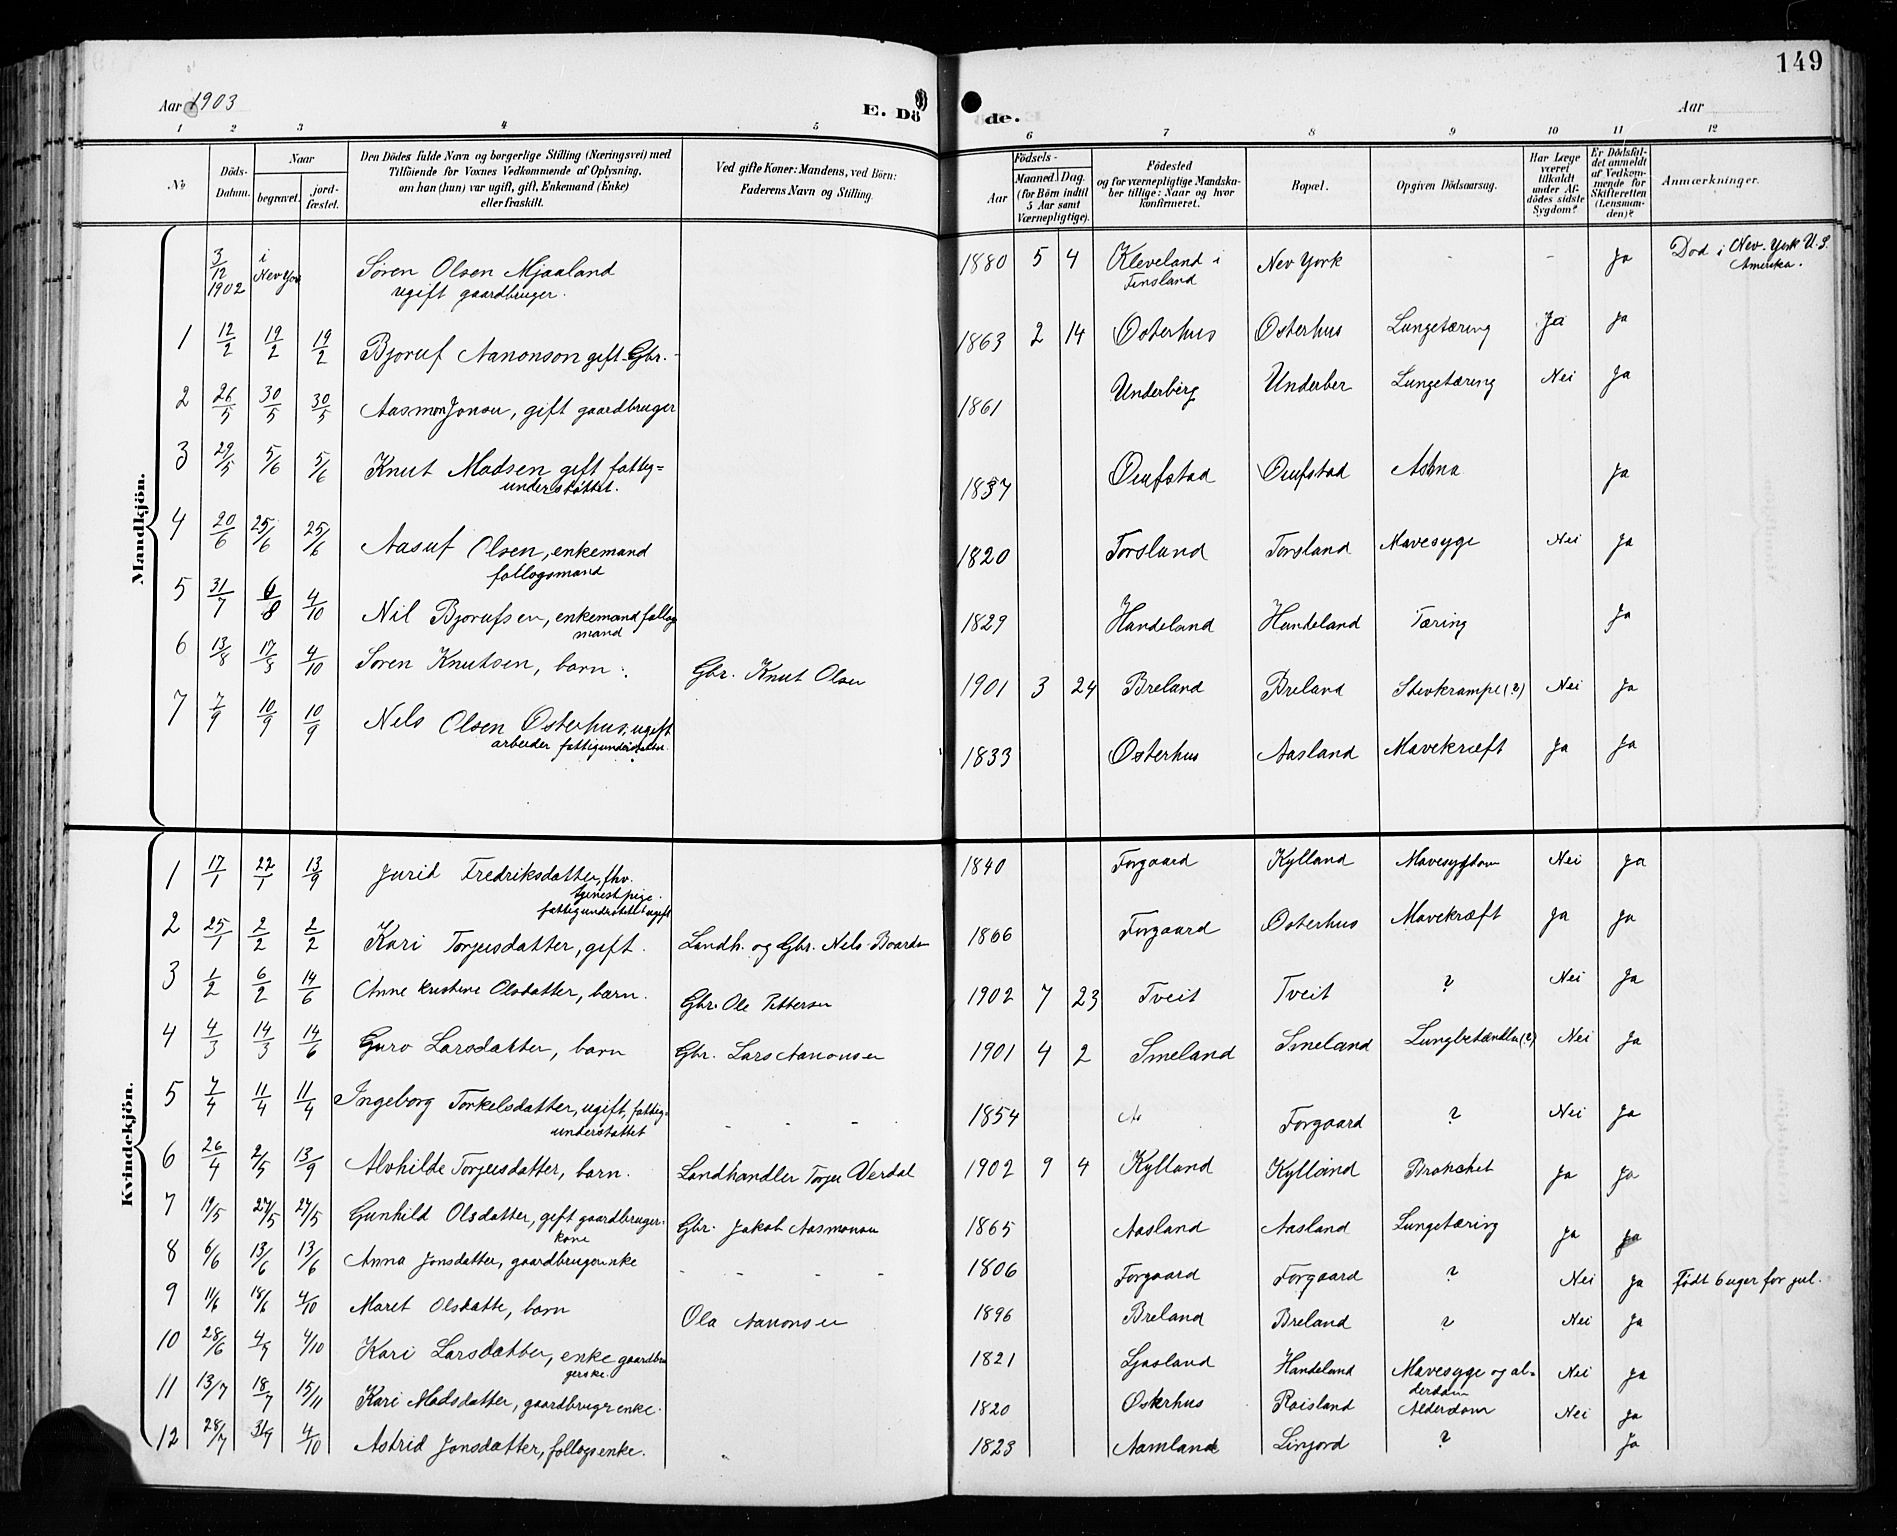 149
Aar 1903
E. Döde.
Aar
1 2 3 4 5 6 7 8 9 10 11 12
No
Döds-Datum.
Naar
begravet.
jord-fæstet.
Den Dödes fulde Navn og borgerlige Stilling (Næringsvei) med
Tilföiende for Voxnes Vedkommende af Oplysning,
om han (hun) var ugift, gift, Enkemand (Enke)
eller fraskilt.
Ved gifte Koner: Mandens, ved Börn:
Faderens Navn og Stilling.
Födsels-
Aar
Maaned. Dag.
(for Börn indtil
5 Aar samt
Værnepligtige).
Födested
og for værnepligtige Mandska-
ber tillige: Naar og hvor
konfirmeret.
Bopæl.
Opgiven Dödsaarsag.
Har Læge
været
tilkaldt
under Af-
dödes sidste
Sygdom?
Er Dödsfal-
det anmeldt
af Vedkom-
mende for
Skifteretten
(Lensman-
den)?
Anmærkninger.
Mandkjön.
3/12 1902 i New York Søren Olsen Mjaaland ugift gaardbruger. 1880 5 4 Kleveland i Finsland New York - - Ja Død i New-York U.S. Amerika.
1 12/2 19/2 19/2 Bjoruf Aanonson gift Gbr. - 1863 2 14 Osterhus Osterhus Lungetæring Ja Ja
2 26/5 30/5 30/5 Aasmon Jonsu, gift gaardbruger 1861 Underberg Underber Lungetæring Nei Ja
3 29/5 5/6 5/6 Knut Madsen gift fattig=understøttet. 1837 Oufstad Oufstad Astma Ja
4 20/6 25/6 25/6 Aasuf Olsen, enkemand follogsmand 1820 Forsland Forsland Mavesyge Nei Ja
5 31/7 6/8 4/10 Nil Bjorufsen, enkemand follogmand 1829 Handeland Handeland Tæring Ja
6 13/8 17/8 4/10 Soren Knutsen, barn. Gbr. Knut Olsen 1901 3 24 Breland Breland Stivkrampe (?) Nei Ja
7 7/9 10/9 10/9 Nels Olsen Osterhus, ugift arbeider fattigunderstøtten. 1833 Osterhus Aasland Mavekræft Ja Ja
Kvindekjön.
1 17/1 22/1 13/9 Jurid Fredriksdatter, fhv. tjenestpige. fattigundrstøttet ugift 1840 Forgaard Kylland Mavesygdom Nei Ja
2 25/1 2/2 2/2 Kari Torjusdatter, gift. Landh. og Gbr. Nels Boards 1866 Forgaard Osterhus Mavekræft Ja Ja
3 1/2 6/2 14/6 Anne Kristine Olsdatter, barn. Gbr. Ole Pettersen 1902 7 23 Tveit Tveit ? Nei Ja
4 4/3 14/3 14/6 Guro Larsdatter, barn Gbr. Lars Aanonsen 1901 4 2 Smeland Smeland Lungbetændlse (?) Nei Ja
5 7/4 11/4 11/4 Ingeborg Torkelsdatter, ugift, fattig-understøttet - - - 1854 Forgaard ? Nei Ja
6 26/4 2/5 13/9 Alvhilde Torjusdatter, barn. Landhandler Torjus Verdal 1902 9 4 Kylland Kylland Bronchit Ja Ja
7 19/5 27/5 27/5 Gunhild Olsdatter, gift gaardbruger-kone Gbr. Jakob Aasmonsen 1865 Aasland Aasland Lungetæring Ja Ja
8 6/6 13/6 13/6 Anna Jonsdatter, gaardbrugerenke - - - - 1806 Forgaard Forgaard ? Nei Ja Født 6 uger for jul.
9 11/6 18/6 4/10 Maret Olsdatte, barn Ola Aanonsen 1896 Breland Breland ? Nei Ja
10 28/6 4/9 4/10 Kari Larsdatter, enke gaardbrugerske. 1821 Ljosland Handeland Mavesyge og alderdom Nei Ja
11 13/7 18/7 15/11 Kari Madsdatter, gaardbrugrenke. 1820 Osterhus Roisland Alderdom Nei Ja
12 28/7 31/9 4/10 Astrid Jonsdatter, follogsenke. 1823 Aamland Linjord ? Ja